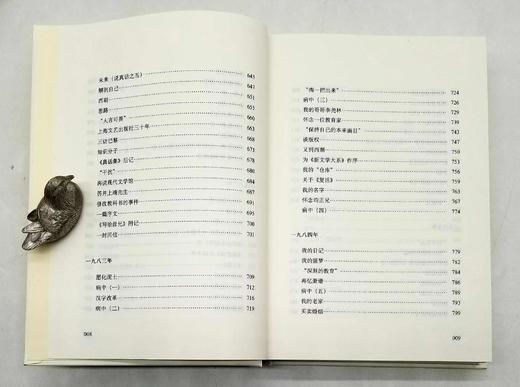 未来（说真话之五） 643
解剖自己 647
西湖 651
思路 655
“人言可畏” 660
上海文艺出版社三十年 663
三访巴黎 668
知识分子 674
《真话集》后记 678
“干扰” 680
再说现代文学馆 684
答井上靖先生 687
修改教科书的事件 690
一篇序文 694
《写给彦兄》附记 697
一封回信 700
一九八三年
愿化泥土 709
病中（一） 712
汉字改革 716
病中（二） 719
008
“掏一把出来” 724
病中（三） 729
我的哥哥李尧林 733
怀念一位教育家 739
“保持自己的本来面目” 744
谈版权 750
又到西湖 753
为《新文学大系》作序 757
我的“仓库” 760
关于《复活》 763
我的名字 767
怀念均正兄 770
病中（四） 774
一九八四年
我的日记 779
我的噩梦 782
“深刻的教育” 785
再忆萧珊 788
病中（五） 790
我的老家 795
买卖婚姻 799
009